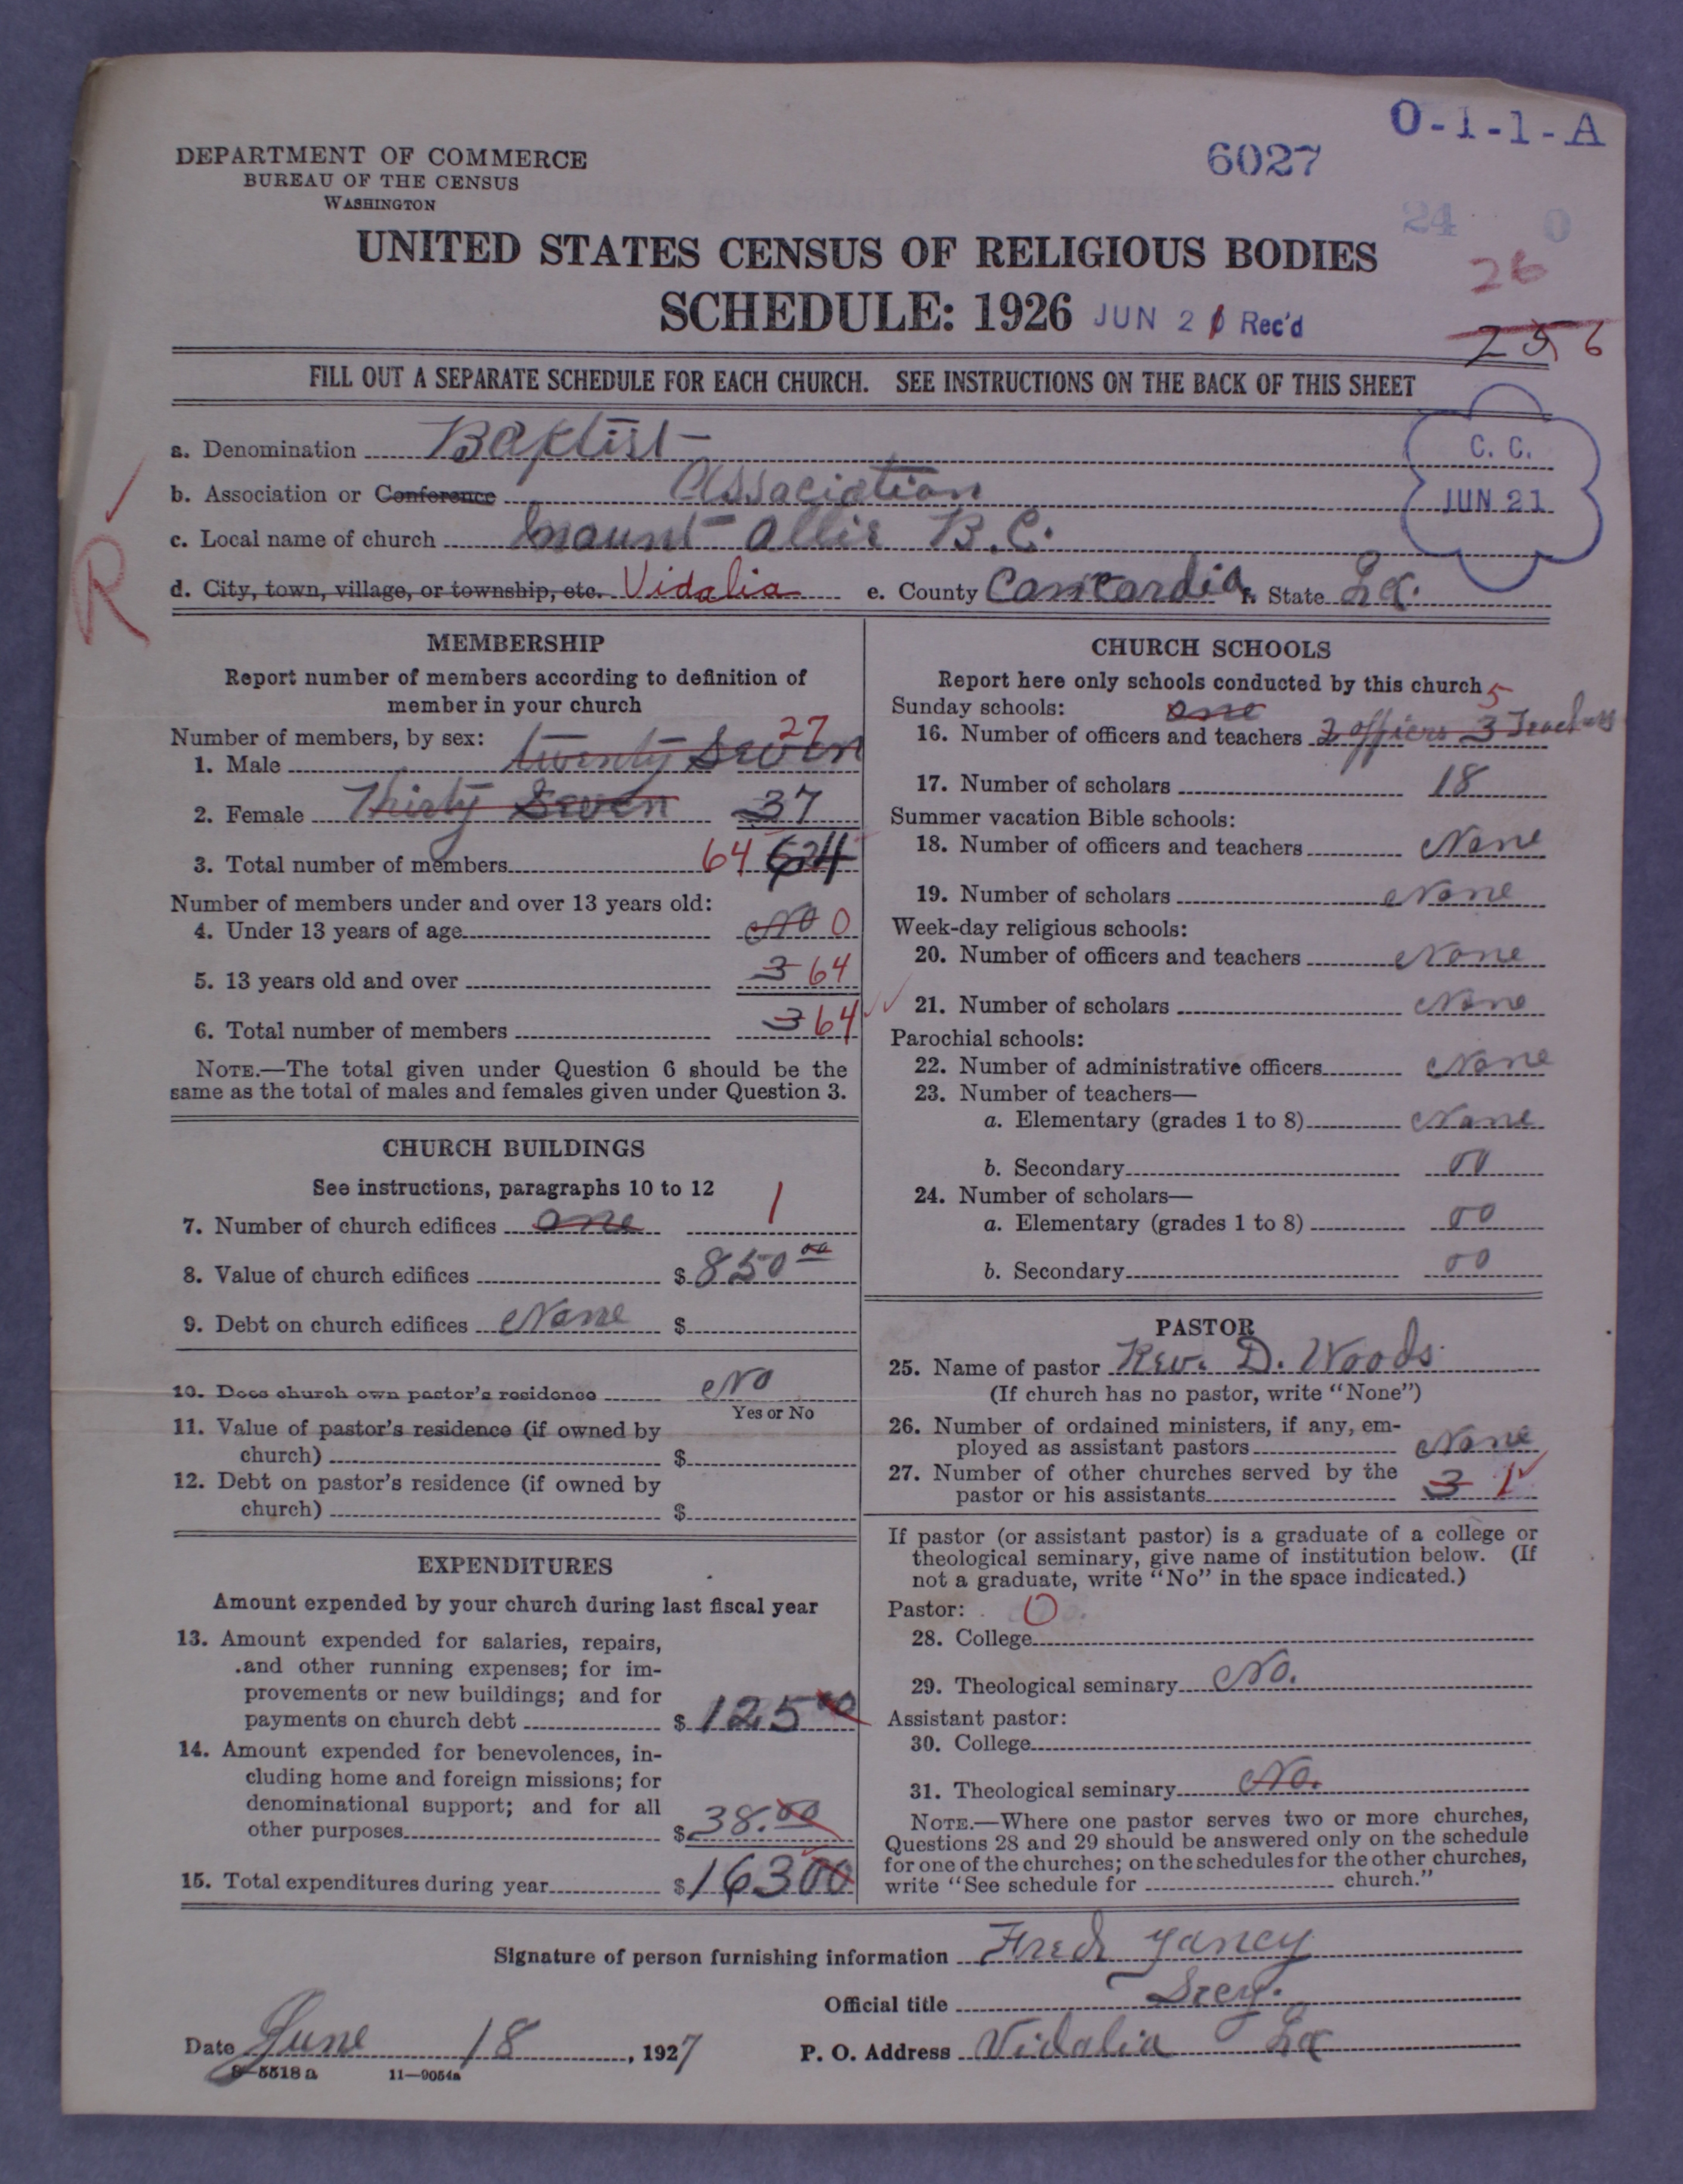 O-1-1-A
DEPARTMENT OF COMMERCE
BUREAU OF THE CENSUS
WASHINGTON
6027
24 0
UNITED STATES CENSUS OF RELIGIOUS BODIES
26
SCHEDULE: 1926 JUN 21 Rec'd
256
FILL OUT A SEPARATE SCHEDULE FOR EACH CHURCH. SEE INSTRUCTIONS ON THE BACK OF THIS SHEET
a. Denomination Baptist
b. Association or Conference Association
c. Local name of church Mount Ollie B.C.
C. C.
JUN 21
d. City, town, village, or township, etc. Vidalia e. County Concordia f. State La.
R
MEMBERSHIP
Report number of members according to definition of
member in your church
Number of members, by sex: 27
1. Male twenty Seven
2. Female Thirty Seven 37
3. Total number of members 64 64
Number of members under and over 13 years old:
4. Under 13 years of age No 0
5. 13 years old and over 3 64
6. Total number of members 3 64
NOTE.—The total given under Question 6 should be the
same as the total of males and females given under Question 3.
CHURCH BUILDINGS
See instructions, paragraphs 10 to 12
7. Number of church edifices one 1
8. Value of church edifices $ 850 00
9. Debt on church edifices None $
10. Does church own pastor's residence No
Yes or No
11. Value of pastor's residence (if owned by
church) $
12. Debt on pastor's residence (if owned by
church) $
EXPENDITURES
Amount expended by your church during last fiscal year
13. Amount expended for salaries, repairs,
and other running expenses; for im-
provements or new buildings; and for
payments on church debt $ 125 00
14. Amount expended for benevolences, in-
cluding home and foreign missions; for
denominational support; and for all
other purposes $ 38.00
15. Total expenditures during year $ 163 00
CHURCH SCHOOLS
Report here only schools conducted by this church
Sunday schools: one 5
16. Number of officers and teachers 2 officers 3 Teachers
17. Number of scholars 18
Summer vacation Bible schools:
18. Number of officers and teachers None
19. Number of scholars None
Week-day religious schools:
20. Number of officers and teachers None
21. Number of scholars None
Parochial schools:
22. Number of administrative officers None
23. Number of teachers—
a. Elementary (grades 1 to 8) None
b. Secondary 00
24. Number of scholars—
a. Elementary (grades 1 to 8) 00
b. Secondary 00
PASTOR
25. Name of pastor Rev. D. Woods
(If church has no pastor, write "None")
26. Number of ordained ministers, if any, em-
ployed as assistant pastors None
27. Number of other churches served by the
pastor or his assistants 3 1
If pastor (or assistant pastor) is a graduate of a college or
theological seminary, give name of institution below. (If
not a graduate, write "No" in the space indicated.)
Pastor: 0
28. College
29. Theological seminary No.
Assistant pastor:
30. College
31. Theological seminary No.
NOTE.—Where one pastor serves two or more churches,
Questions 28 and 29 should be answered only on the schedule
for one of the churches; on the schedules for the other churches,
write "See schedule for church."
Signature of person furnishing information Fred Yancy
Official title Secy.
Date June 18, 1927 P. O. Address Vidalia La
8-5518 a 11—9054a